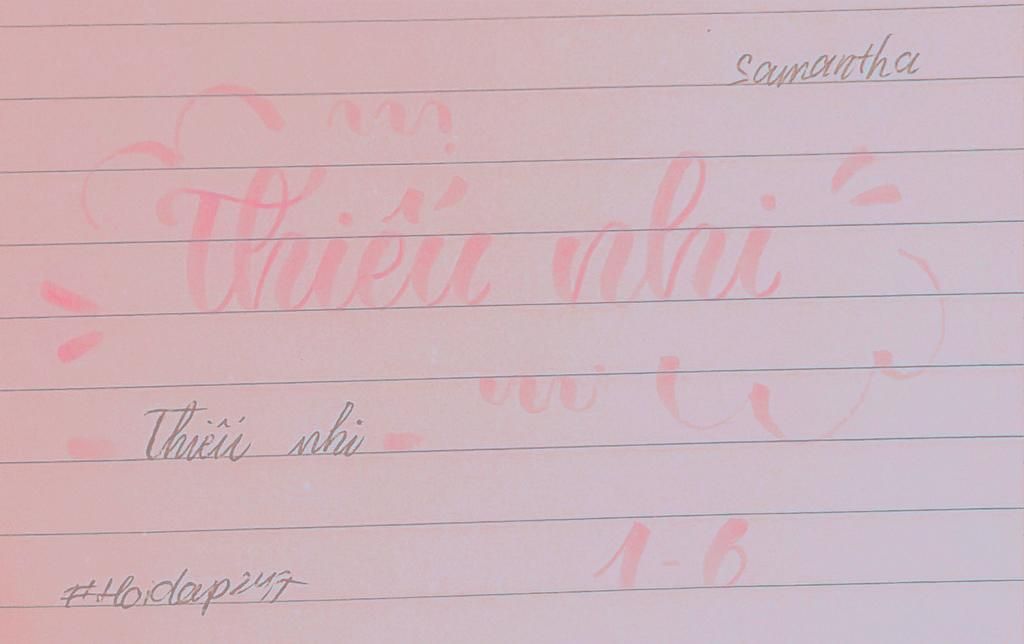 Samantha
Thiếu nhi
Thiếu nhi
1-6
#Hoidap247